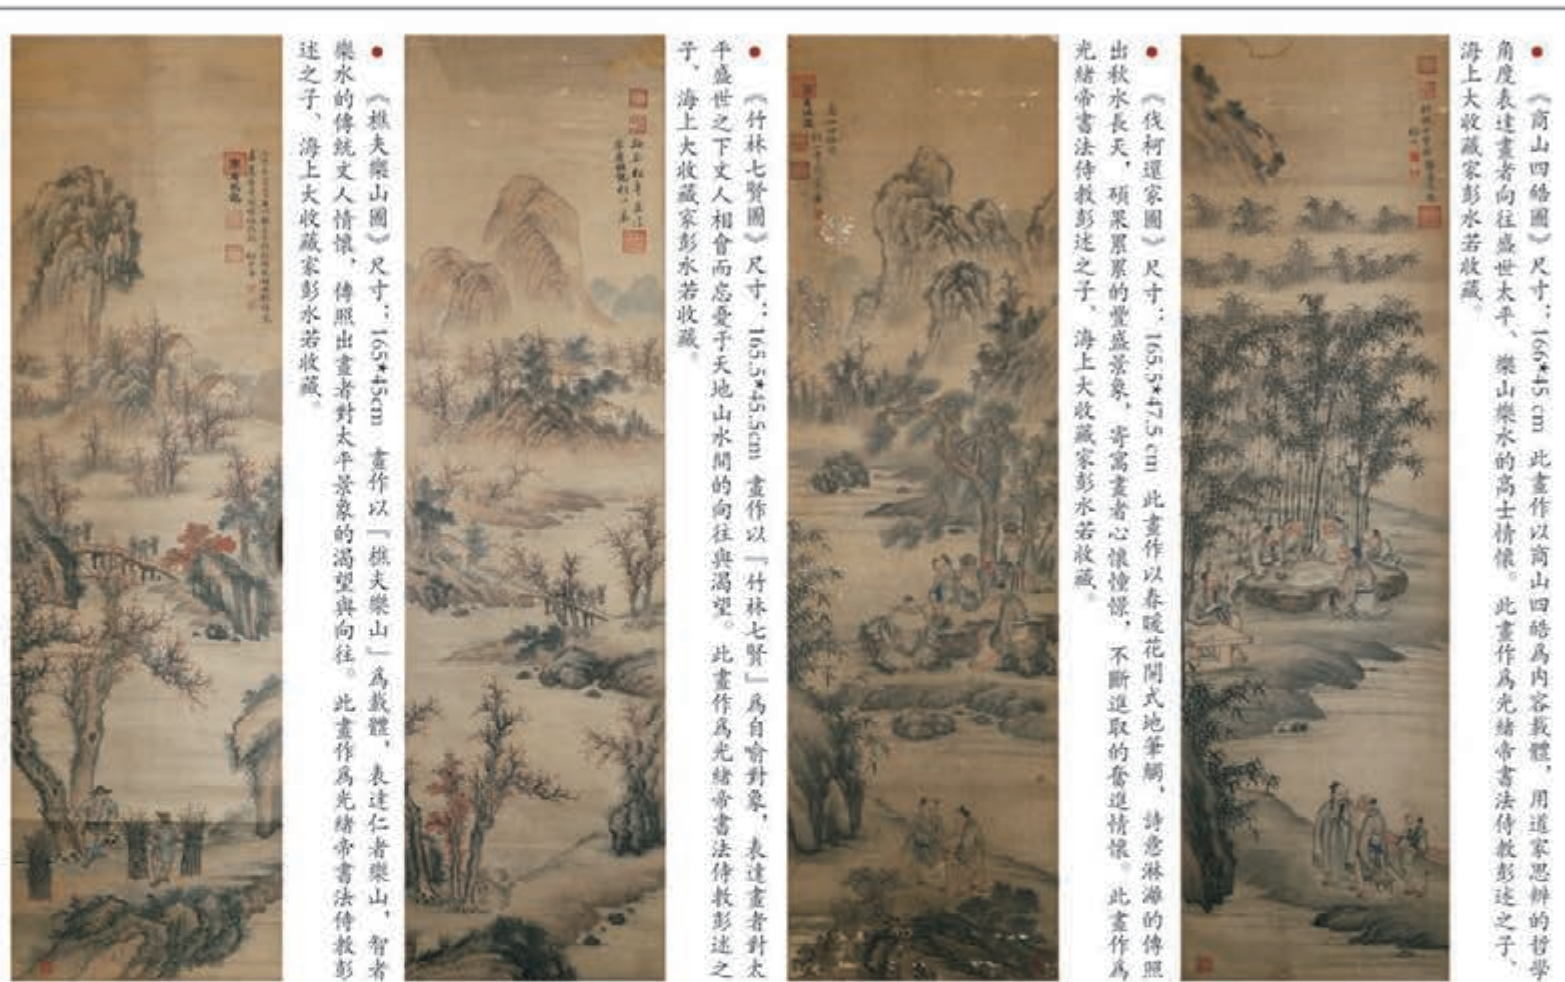 ● 《商山四皓圖》尺寸：166*45 cm 此畫作以商山四皓爲内容載體，用道家思辨的哲學
角度表達畫者向往盛世太平、樂山樂水的高士情懷。此畫作爲光緒帝書法侍教彭述之子、
海上大收藏家彭水若收藏。
● 《伐柯還家圖》尺寸：165.5*47.5 cm 此畫作以春暖花開式地筆觸，詩意淋灕的傳照
出秋水長天，碩果累累的豐盛景象，寄寓畫者心懷憧憬，不斷進取的奮進情懷。此畫作爲
光緒帝書法侍教彭述之子、海上大收藏家彭水若收藏。
● 《竹林七賢圖》尺寸：165.5*45.5cm 畫作以『竹林七賢』爲自喻對象，表達畫者對太
平盛世之下文人相會而忘憂于天地山水間的向往與渴望。此畫作爲光緒帝書法侍教彭述之
子、海上大收藏家彭水若收藏。
● 《樵夫樂山圖》尺寸：165*45cm 畫作以『樵夫樂山』爲載體，表達仁者樂山，智者
樂水的傳統文人情懷，傳照出畫者對太平景象的渴望與向往。此畫作爲光緒帝書法侍教彭
述之子、海上大收藏家彭水若收藏。